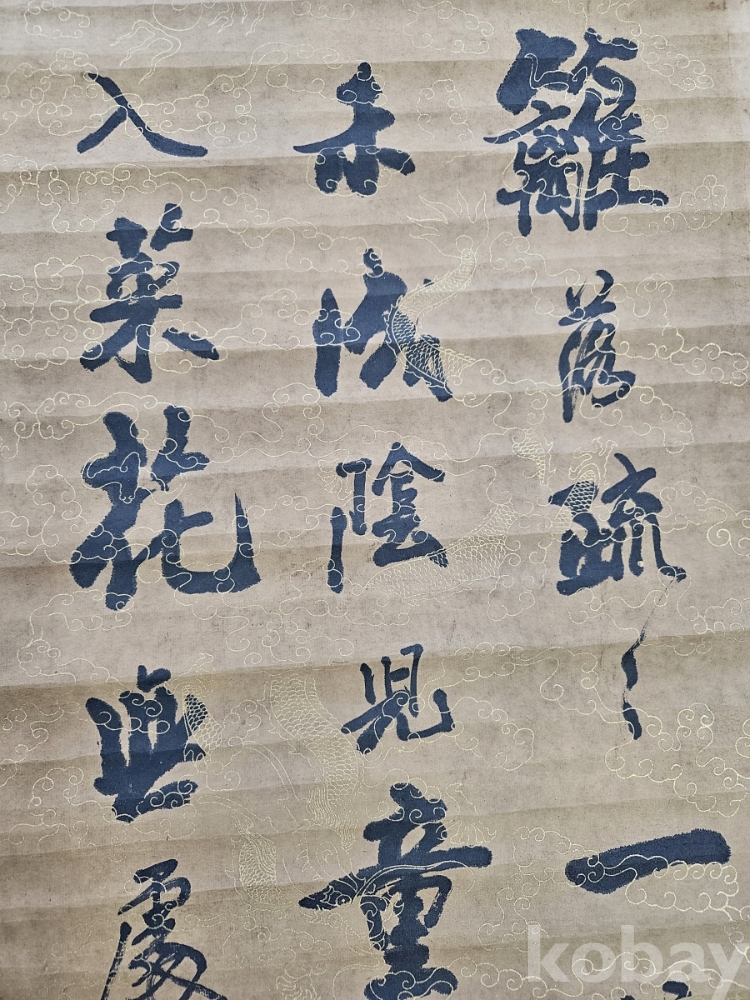 籬落疏〻一
未成陰兒童
入菜花無處
kobay